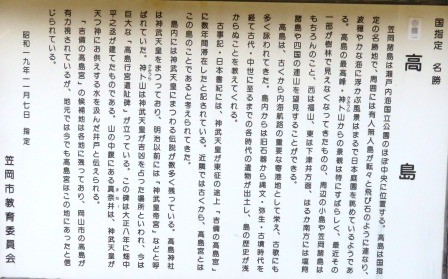 国指定 名勝
高島
笠岡諸島は瀬戸内海国立公園のほぼ中央に位置する。高島は国指
定の名勝地で、周囲には有人無人島が転々と飛び石のように連なり、
波穏やかな海に浮かぶ風景はまるで日本庭園を眺めているようであ
る。高島の最高峰・神卜山からの景観は特にすばらしく、最近その
一部が樹林で見えなくなってきたものの、周辺の小島や笠岡諸島は
もちろんのこと、西は福山、東は下津井方面、はるか南方には塩飽
諸島や四国の連山を望見することができる。
高島は、古くから内海航路の重要な寄港地として栄え、古歌にも
多く詠われてきた。島内からは旧石器から縄文・弥生・古墳時代を
経て古代・中世に至るまでの各時代の遺物が出土し、島の歴史が浅
からぬことを教えてくれる。
古事記・日本書紀には、神武天皇が東征の途上「吉備の高島宮」
に数年間滞在したと記されている。近隣では古くから、高島宮とは
この島のことであると考えられてきた。
島内には神武天皇にまつわる伝説が数多く残っている。高島神社
は神武天皇をまつっており、明治以前には「神武皇帝宮」などと呼
ばれていた。神卜山は神武天皇が吉凶を占った場所といわれ、今は
巨大な「高島行宮遺阯碑」が立っている。この碑は大正八年に畑中
平之丞が建てたものである。山の中腹にある真名井は、神武天皇が
天つ神にお供えする水を汲んだ井戸と伝えられる。
「吉備の高島宮」の候補地は各地に残っており、岡山市の高島が
有力視されているが、地元では今でも高島宮はこの地にあったと信
じられている。
昭和一九年一一月七日 指定
笠岡市教育委員会